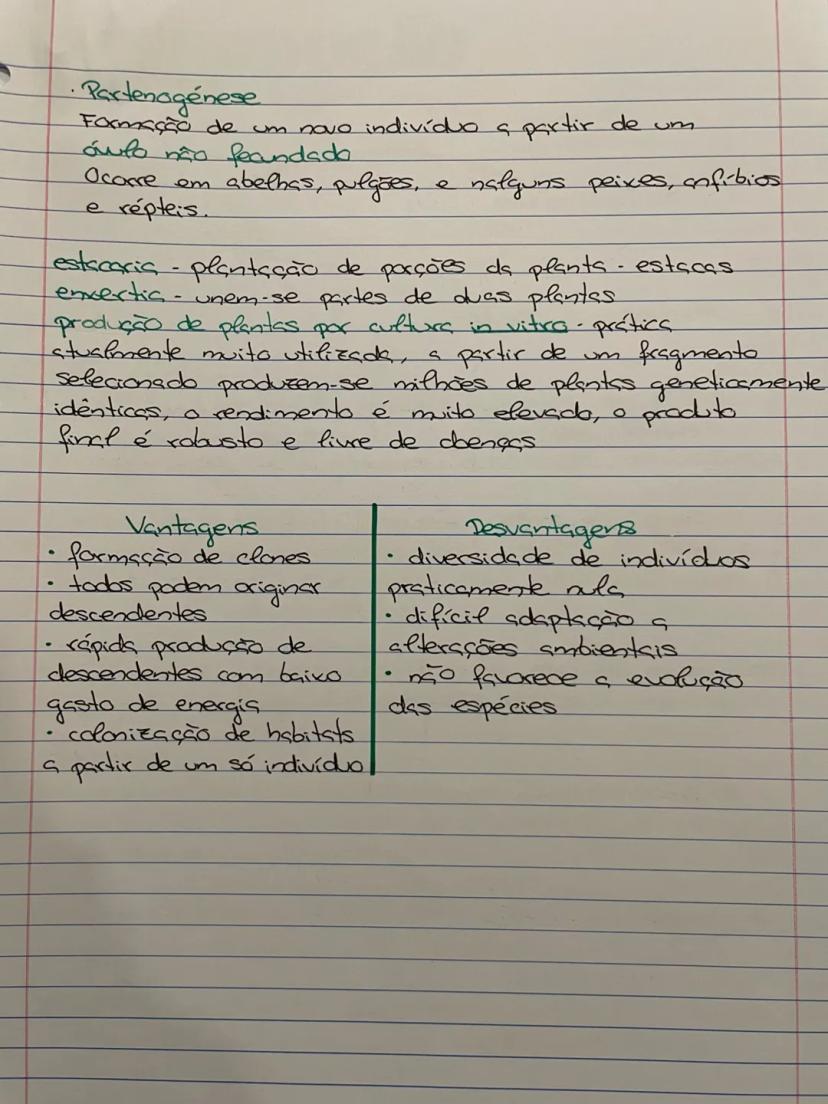 · Partenogénese
Formação de um novo indivíduo a partir de um
óvulo não fecundado
Ocorre em abelhas, pulgões, e nalguns peixes, anfíbios
e répteis.
estacaria - plantação de porções da planta - estacas
enxertia - unem-se partes de duas plantas
produção de plantas por cultura in vitro - prática
atualmente muito utilizada, a partir de um fragmento
selecionado produzem-se milhões de plantas geneticamente
idênticas, o rendimento é muito elevado, o produto
final é robusto e livre de doenças
Vantagens
· formação de clones
· todos podem originar
descendentes
· rápida produção de
descendentes com baixo
gasto de energia
· colonização de habitats
a partir de um só indivíduo
Desvantagens
· diversidade de indivíduos
praticamente nula
· difícil adaptação a
alterações ambientais
· não favorece a evolução
das espécies